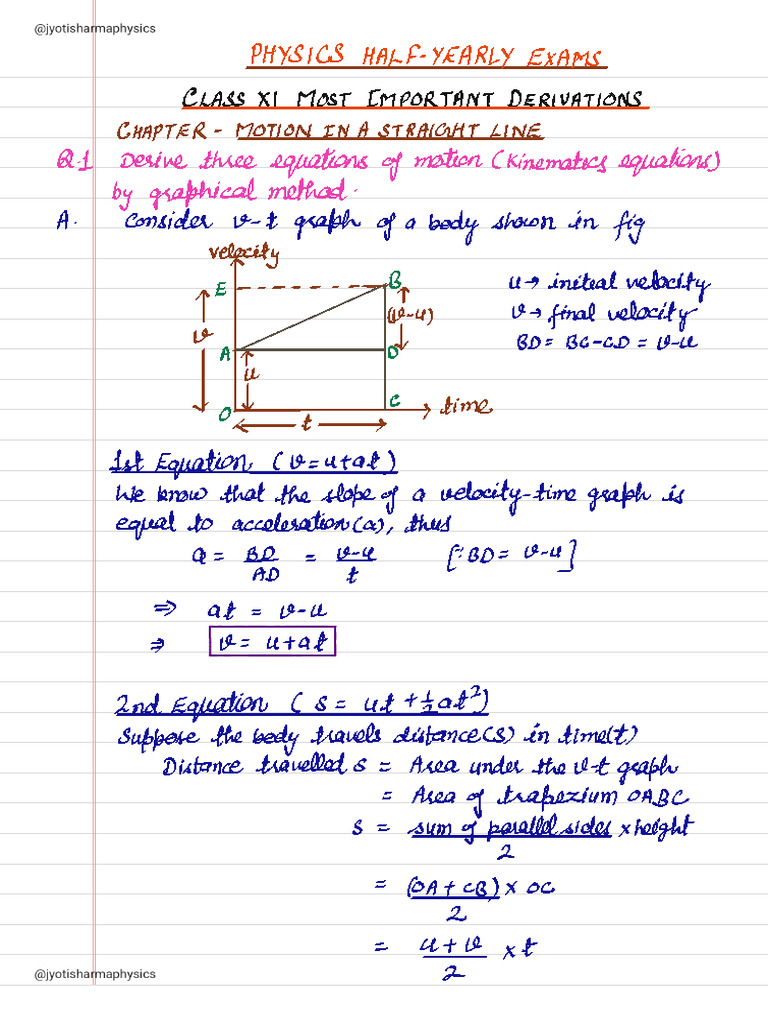 @jyotisharmaphysics
PHYSICS HALF-YEARLY EXAMS
CLASS XI MOST IMPORTANT DERIVATIONS
CHAPTER - MOTION IN A STRAIGHT LINE
Q.1 Derive three equations of motion (Kinematics equations)
by graphical method.
A. Consider v-t graph of a body shown in fig
velocity
E
B
v
(v-u)
A
D
u
O
C
time
t
u → initial velocity
v → final velocity
BD = BC-CD = v-u
1st Equation (v=u+at)
We know that the slope of a velocity-time graph is
equal to acceleration(a), thus
a = BD/AD = v-u/t [∵BD = v-u]
⇒ at = v-u
⇒ v = u+at
2nd Equation ( s = ut + 1/2 at²)
Suppose the body travels distance(s) in time(t)
Distance travelled s = Area under the v-t graph
= Area of trapezium OABC
s = sum of parallel sides/2 × height
= (OA + CB)/2 × OC
= u+v/2 × t
@jyotisharmaphysics